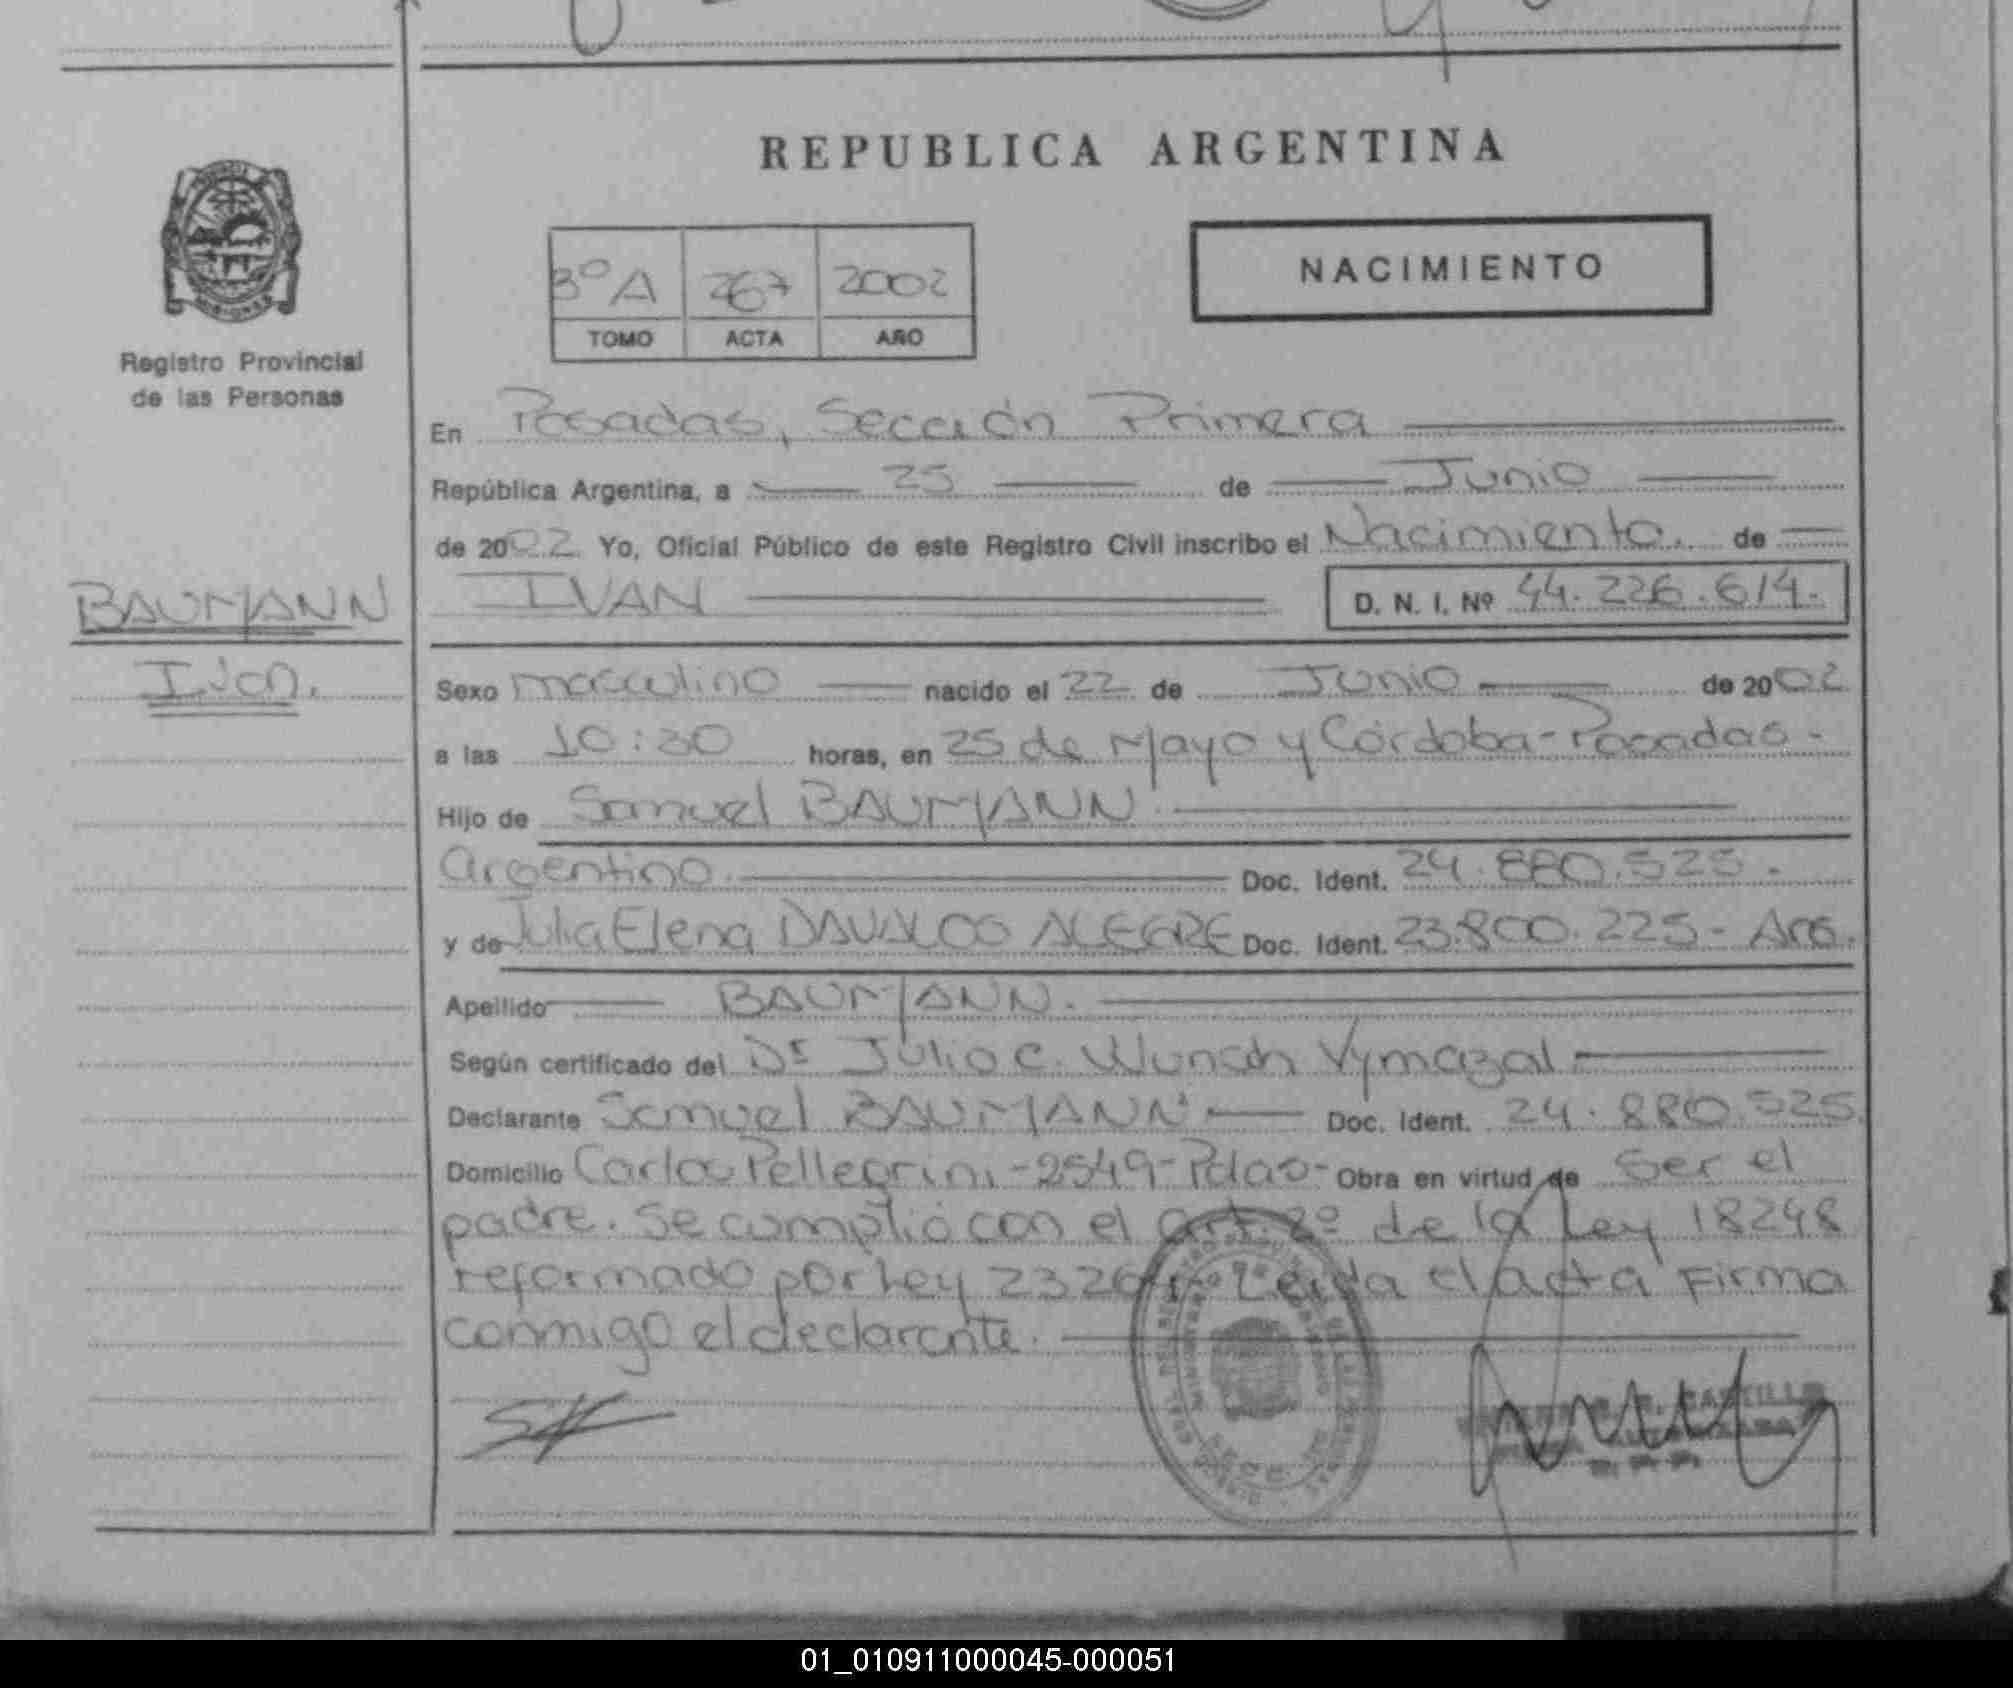 REPUBLICA ARGENTINA
NACIMIENTO
3º A 267 2002
TOMO ACTA AÑO
Registro Provincial
de las Personas
En Posadas, Sección Primera
República Argentina, a 25 de Junio
de 2002 Yo, Oficial Público de este Registro Civil inscribo el Nacimiento. de
BAUMANN
IVAN D. N. I. Nº 44.226.614.
Ivan.
Sexo masculino nacido el 22 de Junio de 2002
a las 10:30 horas, en 25 de Mayo y Córdoba-Posadas-
Hijo de Samuel BAUMANN
Argentino. Doc. Ident. 24.880.525.
y de Julia Elena DAVALOS ALEGRE Doc. Ident. 23.800.225- Arg.
Apellido BAUMANN.
Según certificado del Dr Julio C. Wunsch Vymazal
Declarante Samuel BAUMANN Doc. Ident. 24.880.525.
Domicilio Carlos Pellegrini-2549-Pdas- Obra en virtud de Ser el
padre. Se cumplió con el art. 2º de la Ley 18248
reformado por Ley 23264. Leida el acta Firma
conmigo el declarante.
01_010911000045-000051